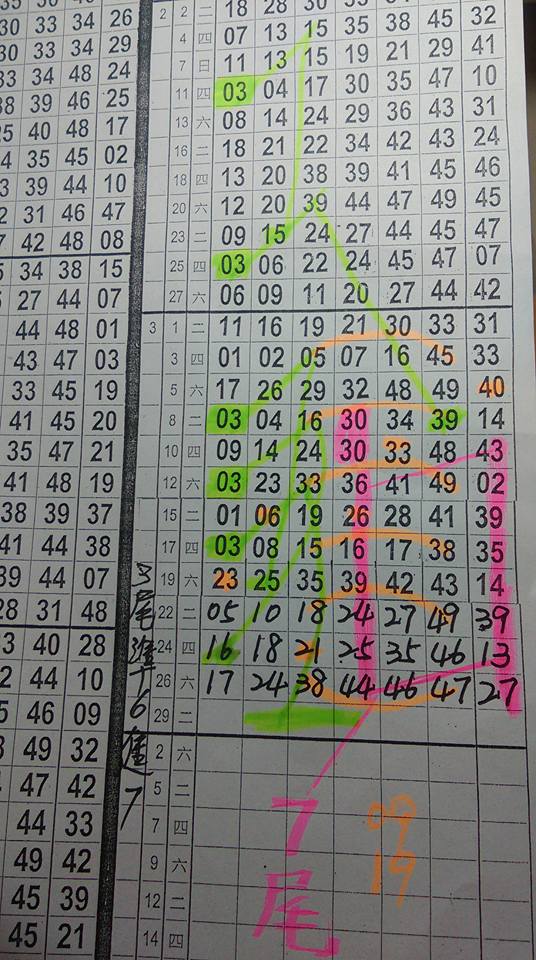 35 30 33 38 2 2 二 18 28 30 35 54
30 33 34 26 4 四 07 13 15 35 38 45 32
30 33 34 29 7 日 11 13 15 19 21 29 41
33 34 48 24 11 四 03 04 17 30 35 47 10
38 39 46 25 13 六 08 14 24 29 36 43 31
25 40 48 17 16 二 18 21 22 34 42 43 24
34 35 45 02 18 四 13 20 38 39 41 45 46
39 44 10 20 六 12 20 39 44 47 49 45
31 46 47 23 二 09 15 24 27 44 45 47
42 48 08 25 四 03 06 22 24 45 47 07
34 38 15 27 六 06 09 11 20 27 44 42
27 44 07 3 1 二 11 16 19 21 30 33 31
44 48 01 3 四 01 02 05 07 16 45 33
43 47 03 5 六 17 26 29 32 48 49 40
33 45 19 8 二 03 04 16 30 34 39 14
41 45 20 10 四 09 14 24 30 33 48 43
35 47 21 12 六 03 23 33 36 41 49 02
41 48 19 15 二 01 06 19 26 28 41 39
38 39 37 17 四 03 08 15 16 17 38 35
41 44 38 19 六 23 25 35 39 42 43 14
39 44 07 22 二 05 10 18 24 27 49 39
28 31 48 24 四 16 18 21 25 35 46 13
40 28 26 六 17 24 38 44 46 47 27
44 10 29 二
46 09 2 六
49 32 5 二
47 42 7 四
44 33 9 六
49 42 12 二
45 39 14 四
45 21
7尾
09
19